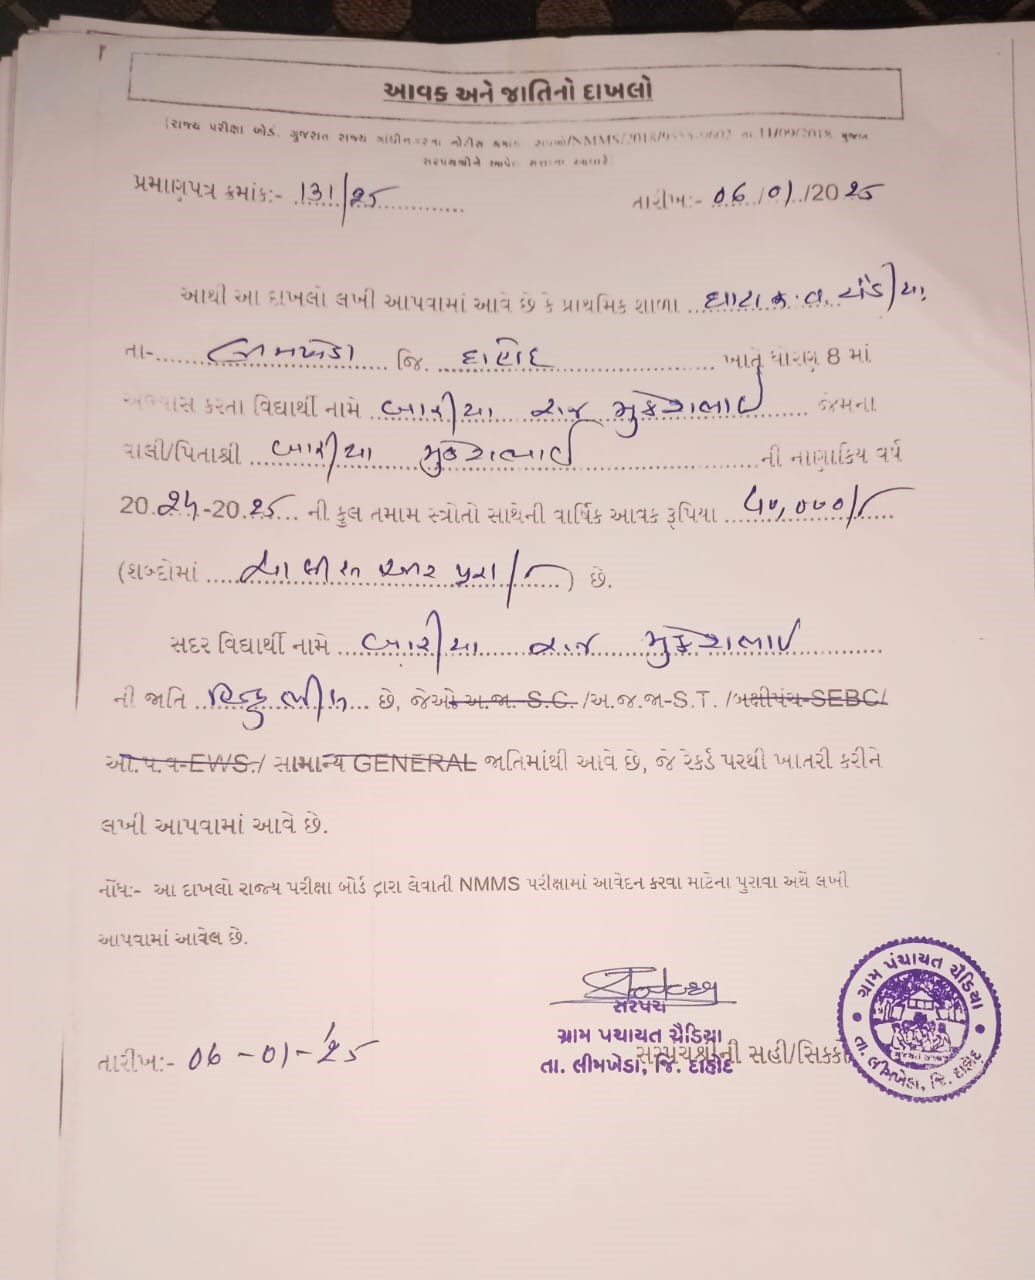 આવક અને જાતિનો દાખલો
(રાજ્ય પરીક્ષા બોર્ડ, ગુજરાત રાજ્ય ગાંધીનગરના નોટીસ ક્રમાંક તા 11/09/2018 મુજબ
સરપંચશ્રીને આપેલ સત્તાના આધારે)
પ્રમાણપત્ર ક્રમાંક:- 131/25 તારીખ:- 06/01/2025
આથી આ દાખલો લખી આપવામાં આવે છે કે પ્રાથમિક શાળા
તા-. લીમખેડા જિ. દાહોદ ખાતે ધોરણ 8 માં
અભ્યાસ કરતા વિદ્યાર્થી નામે બારીયા રાજ મુકેશભાઈ જેમના
વાલી/પિતાશ્રી બારીયા મુકેશભાઈ ની નાણાકિય વર્ષ
2024-2025 ની કુલ તમામ સ્ત્રોતો સાથેની વાર્ષિક આવક રૂપિયા 40,000/-
(શબ્દોમાં ચાલીસ હજાર પુરા/-) છે.
સદર વિદ્યાર્થી નામે બારીયા રાજ મુકેશભાઈ
ની જાતિ હિન્દુ ભીલ છે, જેઓ અ.જા. S.C. /અ.જ.જા-S.T. /બક્ષીપંચ-SEBC/
ઓ.પ.વ-EWS./ સામાન્ય GENERAL જાતિમાંથી આવે છે, જે રેકર્ડ પરથી ખાતરી કરીને
લખી આપવામાં આવે છે.
નોંધ:- આ દાખલો રાજ્ય પરીક્ષા બોર્ડ દ્રારા લેવાતી NMMS પરીક્ષામાં આવેદન કરવા માટેના પુરાવા અર્થે લખી
આપવામાં આવેલ છે.
સરપંચ
ગ્રામ પંચાયત ચૈડિયા
તા. લીમખેડા, જિ. દાહોદ
તારીખ:- 06-01-'25 સરપંચશ્રીની સહી/સિક્કો
ગ્રામ પંચાયત ચૈડિયા
તા. લીમખેડા, જિ. દાહોદ